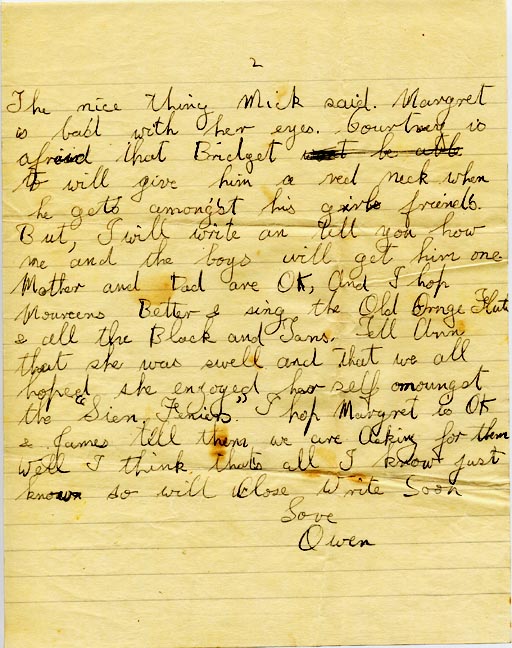 2
The nice thing Mick said. Margret
is bad with her eyes. Courtney is
afraid that Bridget
will give him a red neck when
he gets amongst his girls friends.
But, I will write an tell you how
me and the boys will get him one.
Mother and Dad are OK, And I hop
Moureens Better & sing the Old Ornge Flute
& all the Black and Tans. Tell Ann
that she was swell and that we all
hoped she enjoyed her self amoungst
the "Sien Feniers" I hop Margret is OK
& James tell them we are Asking for them
Well I think thats all I know just
known so will Close Write Soon
Love
Owen